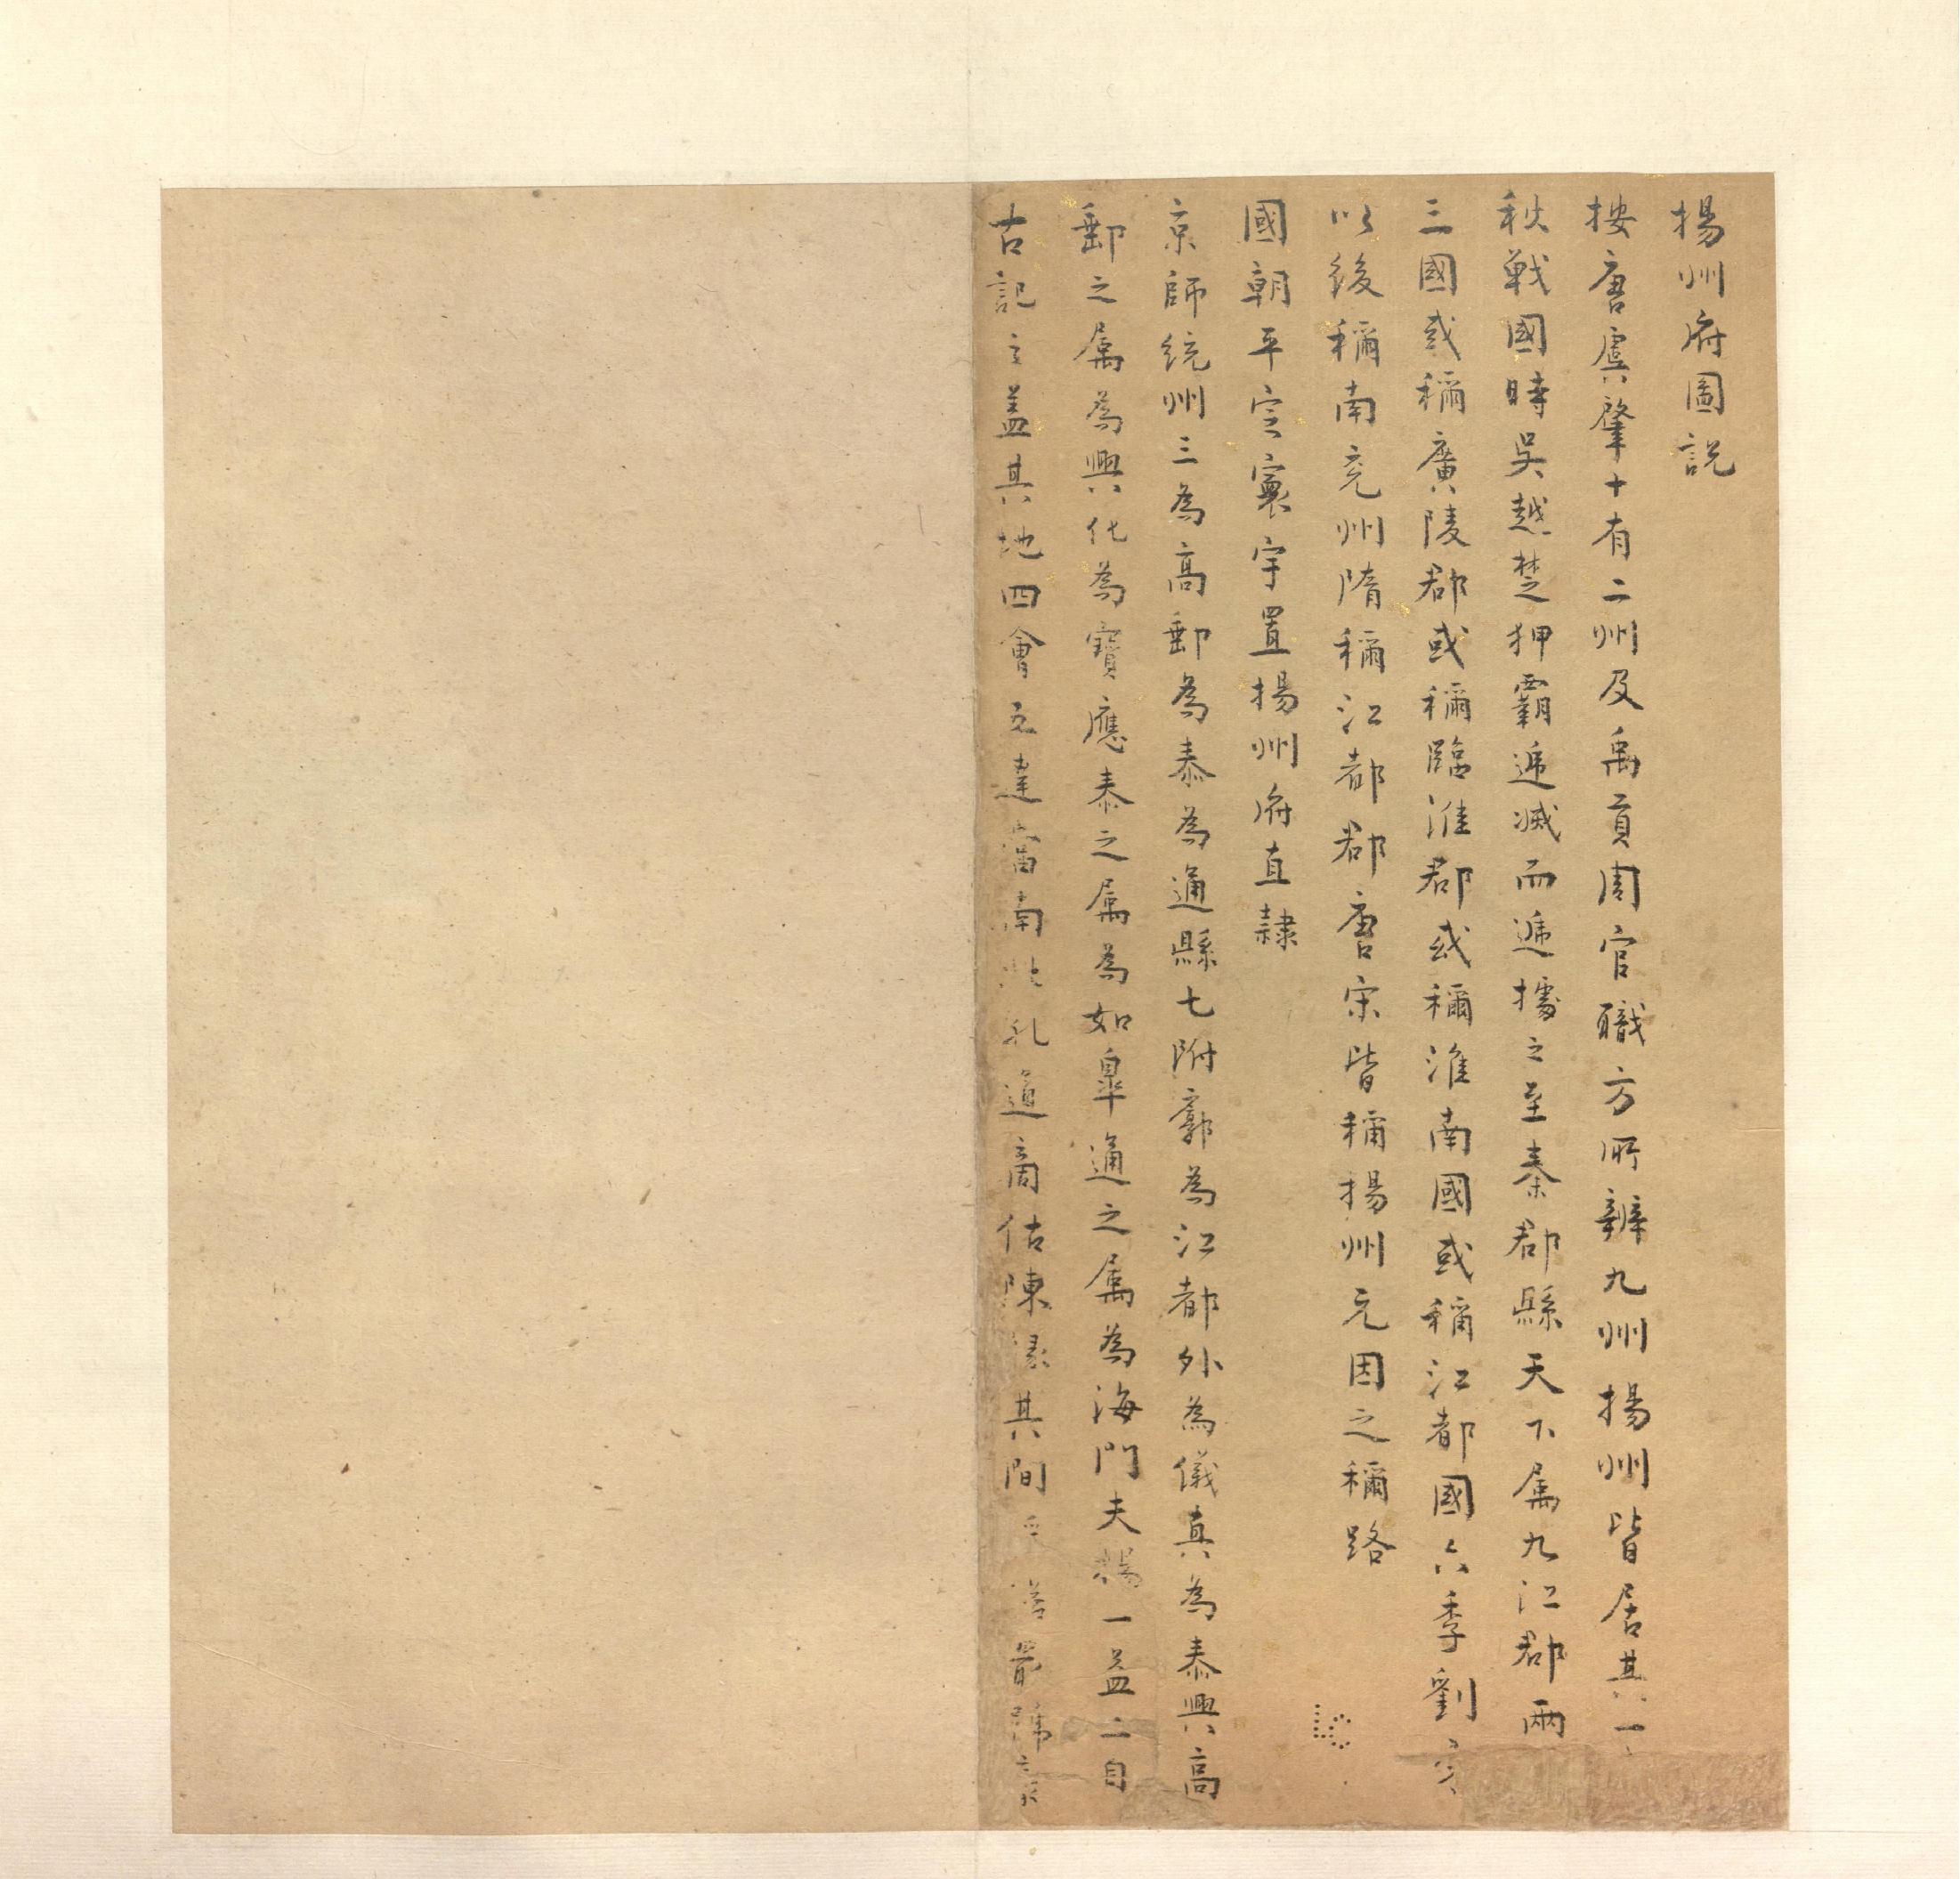 揚州府圖說
按唐虞肇十有二州及禹貢周官職方所辨九州揚州皆居其一
秋戰國時吳越楚狎霸遞滅而遞據之至秦郡縣天下属九江郡兩
三國或稱廣陵郡或稱臨淮郡或稱淮南國或稱江都國六季劉宋
以後稱南兖州隋稱江都郡唐宋皆稱揚州元因之稱路
國朝平定寰宇置揚州府直隷
京師統州三為高郵為泰為通縣七附郭為江都外為儀真為泰興高
郵之属為興化為寶應泰之属為如皐通之属為海門夫揚一益二自
古記之盖其地四會五達當南北孔道商估陳椽其間